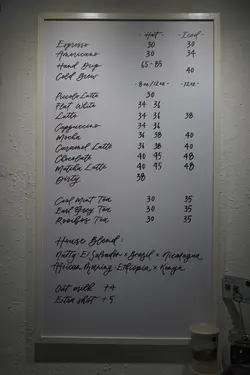 - Hot - - Iced -
Espresso 30 30
Americano 30 34
Hand Drip 65-85
Cold Brew 40
- 8oz/12oz - - 12oz -
Piccolo Latte 30
Flat White 34 36
Latte 34 36 38
Cappuccino 34 36
Mocha 36 38 40
Caramel Latte 36 38 40
Chocolate 40 45 48
Matcha Latte 40 45 48
Dirty 38
Cool Mint Tea 30 35
Earl Grey Tea 30 35
Rooibos Tea 30 35
House Blend:
Nutty: El Salvador × Brazil × Nicaragua
African Morning: Ethiopia × Kenya
Oat milk +4
Extra shot +5